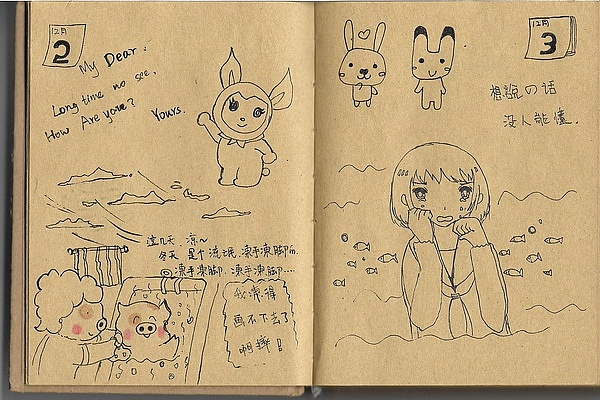 12月
2
My Dear:
Long time no see.
How Are you?
Yours.
这几天 凉~
冬天 是个流氓,凍手凍脚
凍手凍脚,凍手凍脚……
我覺得
画不下去了
啊!
12月
3
想說の话
没人能懂.